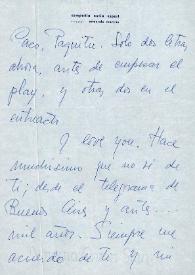 compañia nuria espert
Paco, Paquito. Solo dos letras
ahora, antes de empezar el
play, y otras dos en el
entreacto
I love you. Hace
muchisimo que no sé de
ti; desde el telegrama de
Buenos Aires y antes...
mil años. Siempre me
acuerdo de ti y mi